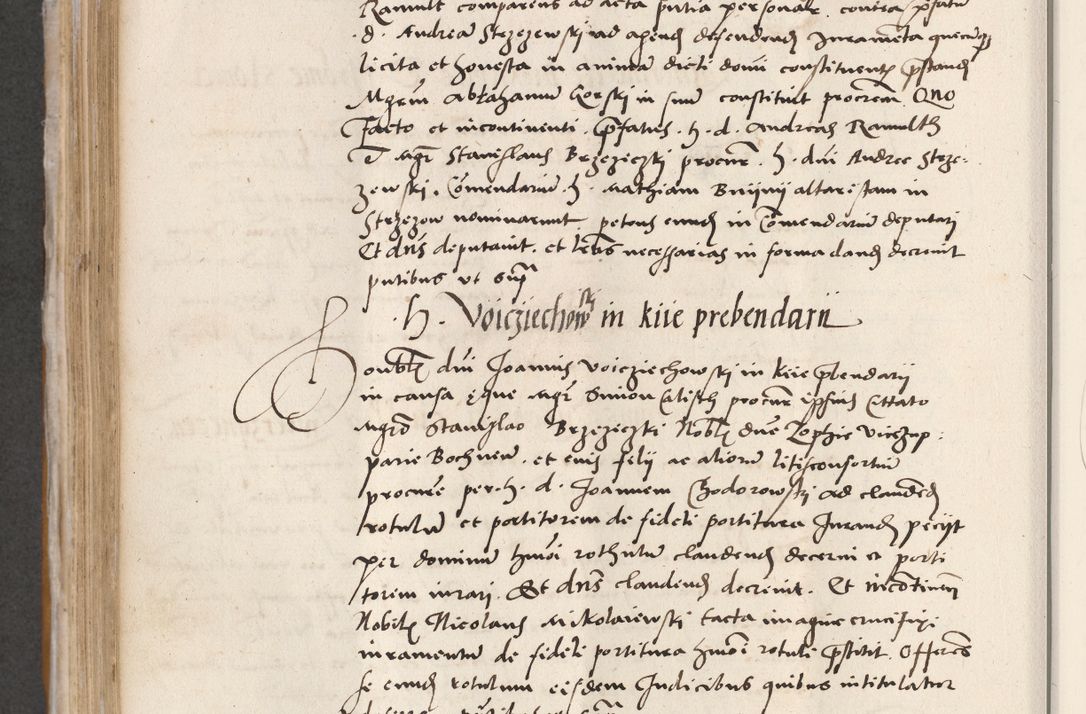 Ramult comparens ad acta putia personalr. contra pfatu
d. Andream Strzezewski ad agend defendend Jurameta quecuqz
licita et honesta in animam dicti domi constituentz pstand
Mgrum Abrahamum Gorski in suum constituit procrem. Quo
facto et incontinenti. pfatus. h. d. Andreas Ramulth
et Mgr Stanislaus Brzezeczki procur. h. dni Andree Strze:
zewski. Comendarium. h. Mathiam altaristam in
Strzezow nominarunt petens eund in Comendarium deputari
Et dns deputauit. et lras necessarias in forma dand decreuit
putibus vt supra
h. Voicziechowski in kiie prebendarii
Honblis dni Joannis Voicziechowski in kiie pbendarii
in causa eque Mgr Simon procur ipsius Cittato
Mgro Stanislao Brzezeczki Noblis dne Zophie Vicezup:
parie Bochnen. et eius filii ac aliorum litisconsortium
procure per. h. d. Joannem Chodorowski ad claudend
rotulum et portitorem de fideli portitura Jurand peciit
per dominum hmoi rothulum claudend decerni et porti
torem iurari. Et dns claudend decreuit. Et incontinenti
Nobilis Nicolaus Mikolaiewski tacta imagine crucifixi
iuramentum de fideli portitura hmoi rotuli pstitit. Offerens
se eund rotulum eisdem Judicibus quibus intitulatur